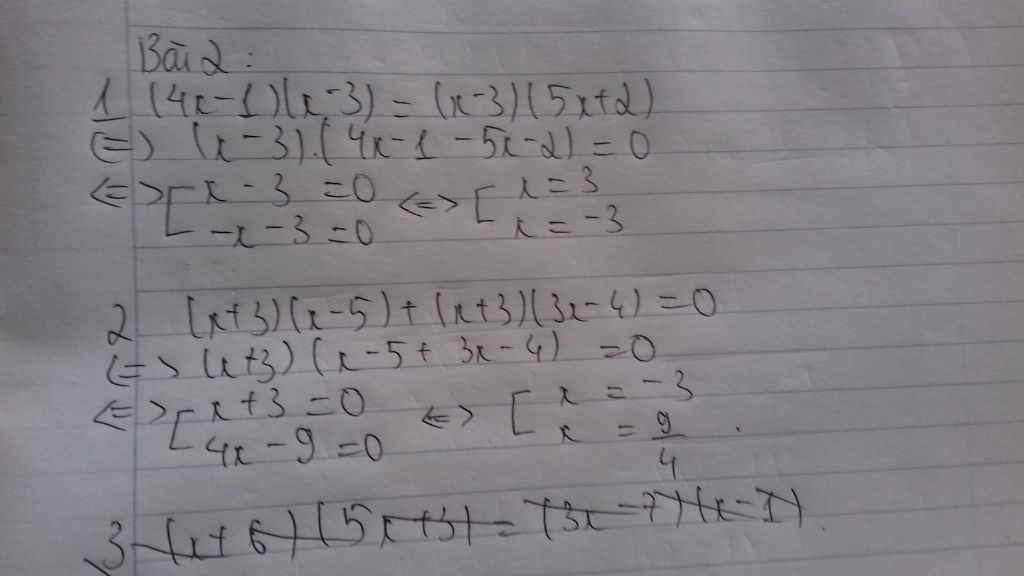 Bài 2:
1 (4x-1)(x-3) = (x-3)(5x+2)
<=> (x-3).(4x-1-5x-2) = 0
<=> [ x-3 = 0 <=> [ x = 3
-x-3 = 0 x = -3
2 (x+3)(x-5)+(x+3)(3x-4) = 0
<=> (x+3)(x-5+3x-4) = 0
<=> [ x+3 = 0 <=> [ x = -3
4x-9 = 0 x = 9/4.
3 (x+6)(5x+3) = (3x-7)(x-1).